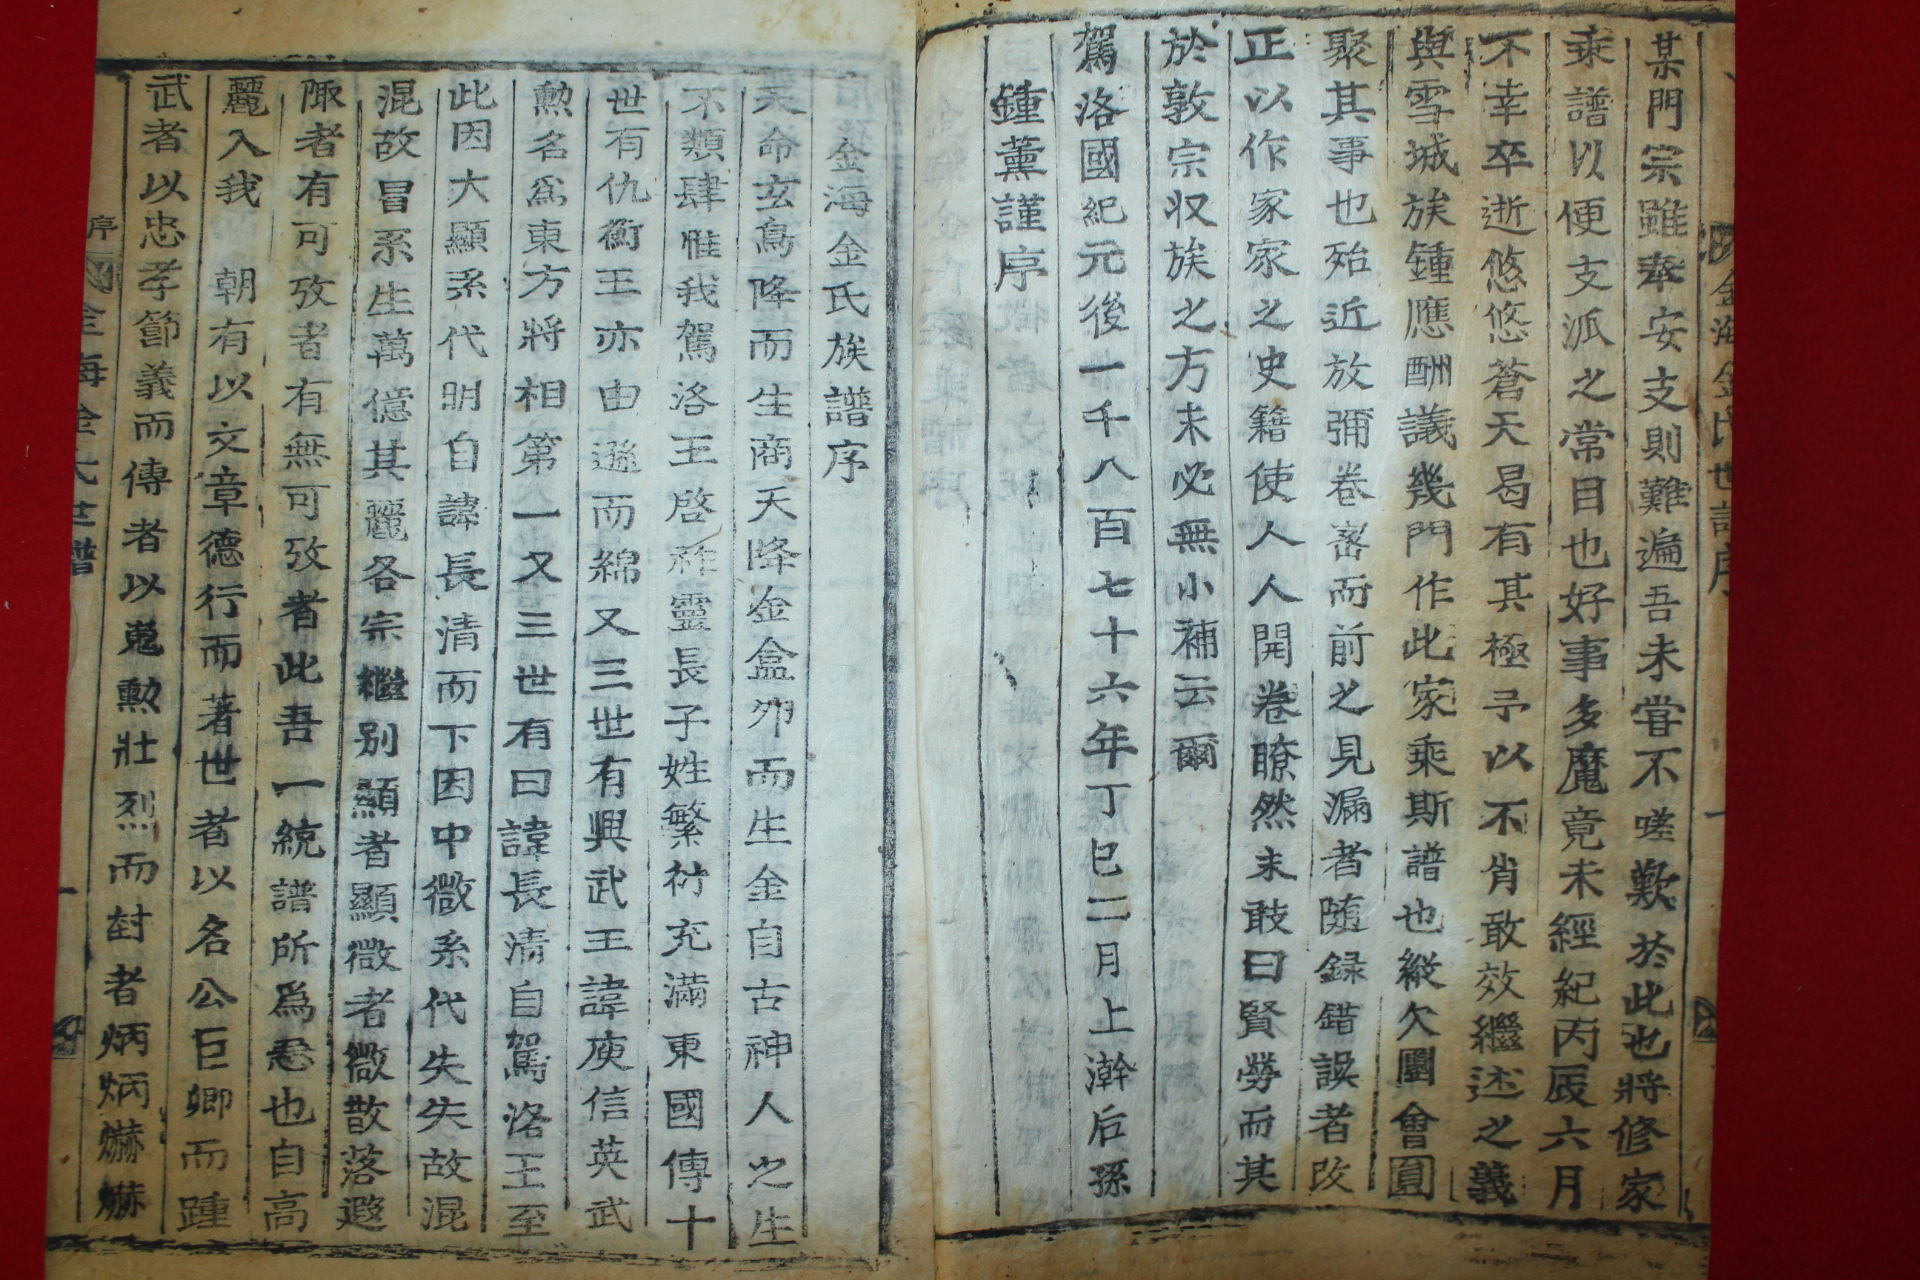 金海金氏世譜序 一
某門宗雖奉安支則難遍吾未嘗不嗟歎於此也將修家
乘譜以便支派之常目也好事多魔竟未經紀丙辰六月
不幸卒逝悠悠蒼天曷有其極予以不肖敢效繼述之義
與雪城族鍾應酬議幾門作此家乘斯譜也縱欠團會圓
聚其事也殆近放彌卷峇而前之見漏者随録錯誤者改
正以作家家之史籍使人人開卷瞭然未敢曰賢勞而其
於敦宗収族之方未必無小補云爾
駕洛國紀元後一千八百七十六年丁巳二月上澣后孫
鍾薰謹序
金海金氏族譜序
天命玄鳥降而生商天降金盒卵而生金自古神人之生
不類肆惟我駕洛王啓祚靈長子姓繁衍充滿東國傳十
世有仇衡王亦由遜而綿又三世有興武王諱庾信英武
勲名爲東方將相第一又三世有曰諱長清自駕洛王至
此因大顯系代明自諱長清而下因中微系代失失故混
混故冒系生萬億其麗各宗繼别顯者顯微者微散落遐
陬者有可攷者有無可攷者此吾一統譜所爲惎也自高
麗入我 朝有以文章德行而著世者以名公巨卿而踵
武者以忠孝節義而傳者以蒐勲壯烈而封者炳炳爀爀
序 金海金氏世譜 一